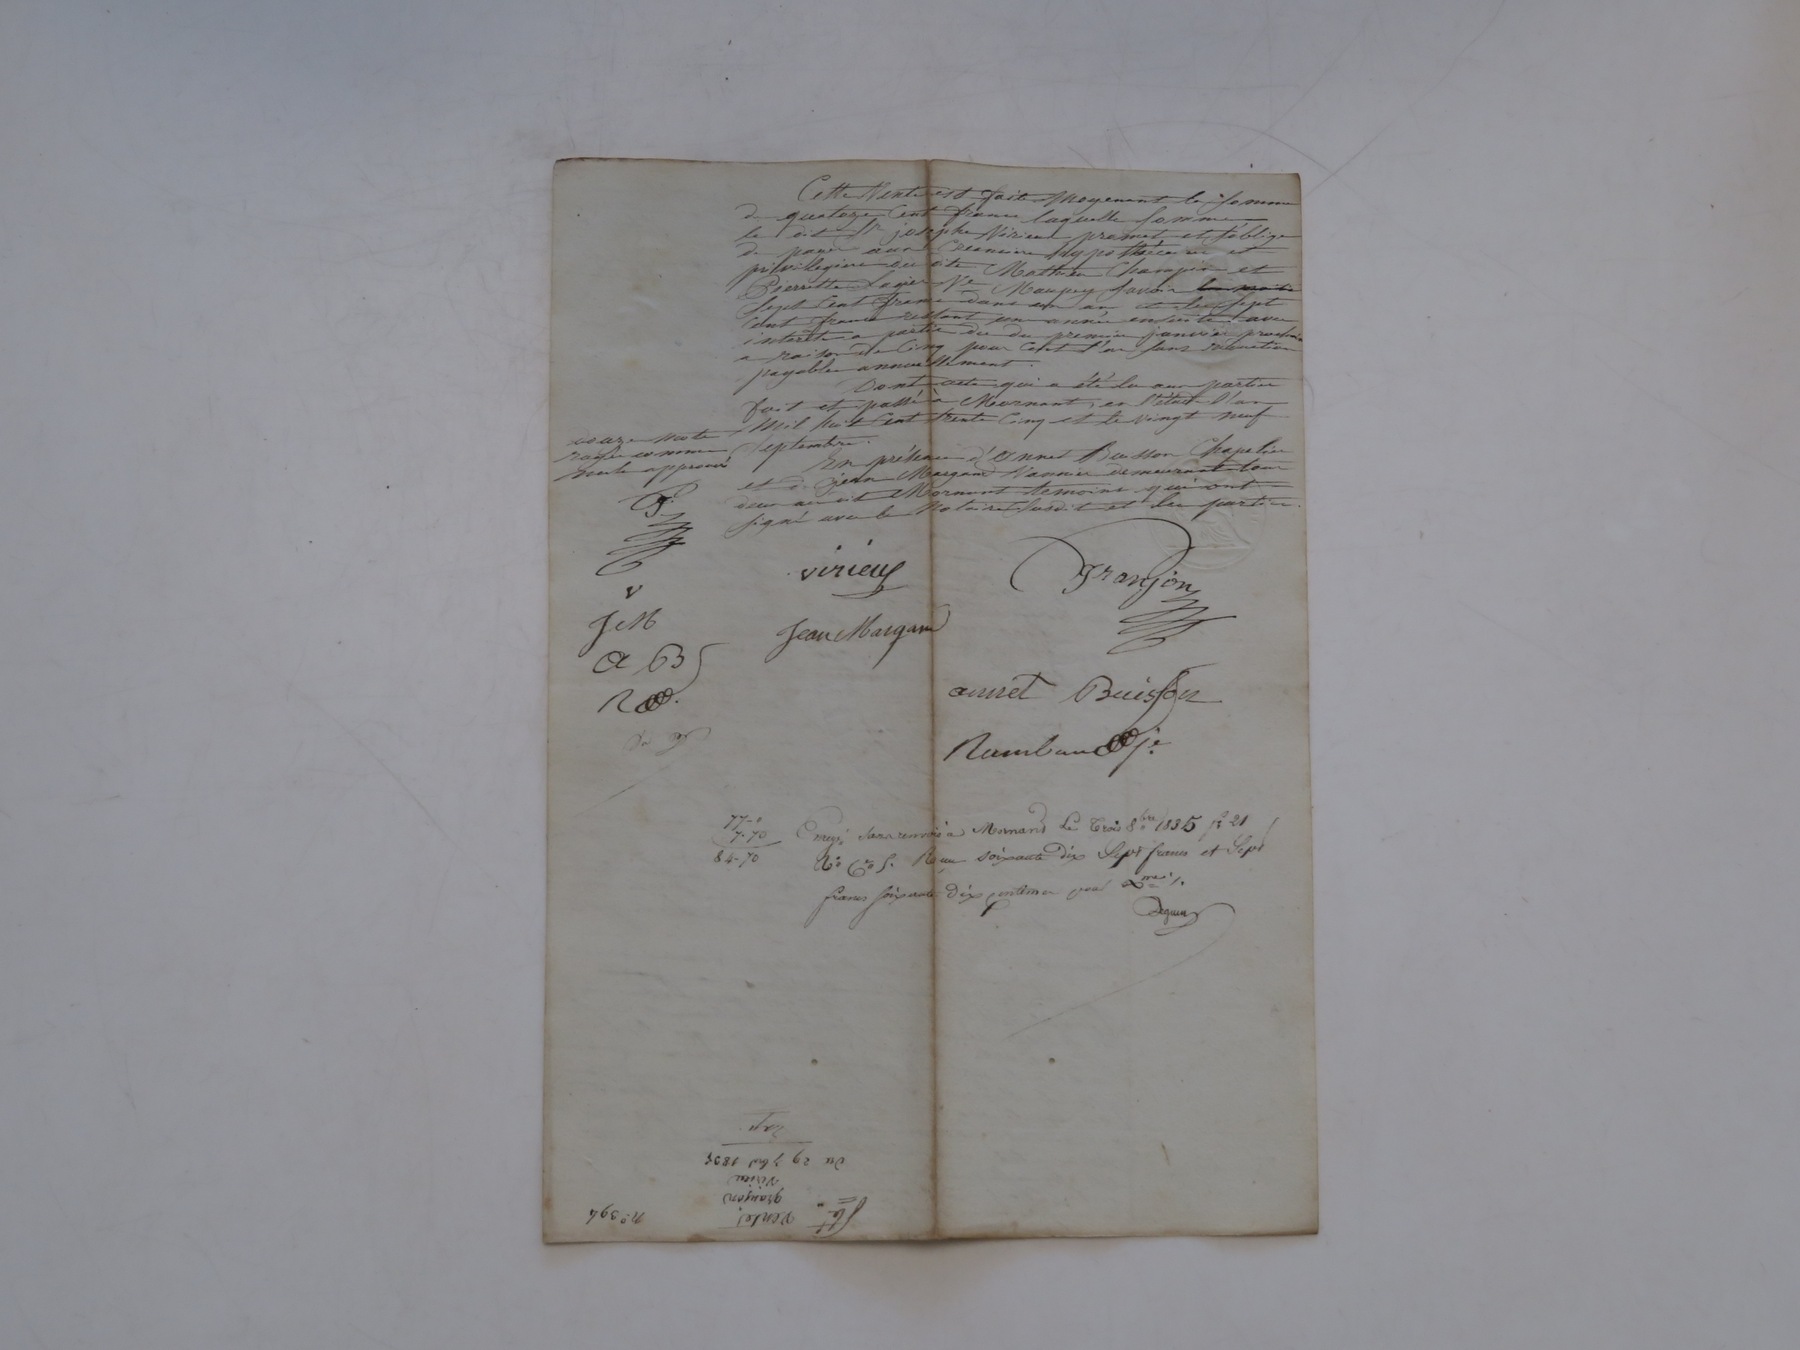 Cette Vente est faite Moyenant la Somme
de quatorze Cent francs laquelle Somme
le dit Sr josephe Virieu promet et s'oblige
de payer aux Creancier hypothécaire et
privilegier dudit Mathieu Champin et
Pierrette Lagier Ve Maupey Savoir la moitié
Sept Cent franc dans un an et les Sept
Cent franc restant une année ensuite avec
intérêt a partir du du premier janvier prochain
a raison de Cinq pour Cent l'an sans retenution
payable annuellement.
Dont acte qui a été lu aux partie
fait et passé à Mornant, en l'étude l'an
Mil huit Cent trente Cinq et le vingt neuf
Septembre.
En présence d'Annet Buisson Chapelier
et de jean Margand Vannier demeurant tour
deux au dit Mornant temoins qui ont
signé avec le Notaire Susdit et les partie.
onze mots
rayée comme
nuls approuvé
G.
v
J M
a B
R
virieux
Granjon
Jean Margand
annet Buisson
Rambaud je
77-"
7-70
84-70
Enregé sans renvoi à Mornant Le Trois 8bre 1835 fo 21
Ro Ces 5. Reçu soixante dix Sept francs et Sept
francs soixante dix centimes pour Xme /.
Deguin
No 394
Vente,
granjon
Virieu
Du 29 7bre 1835